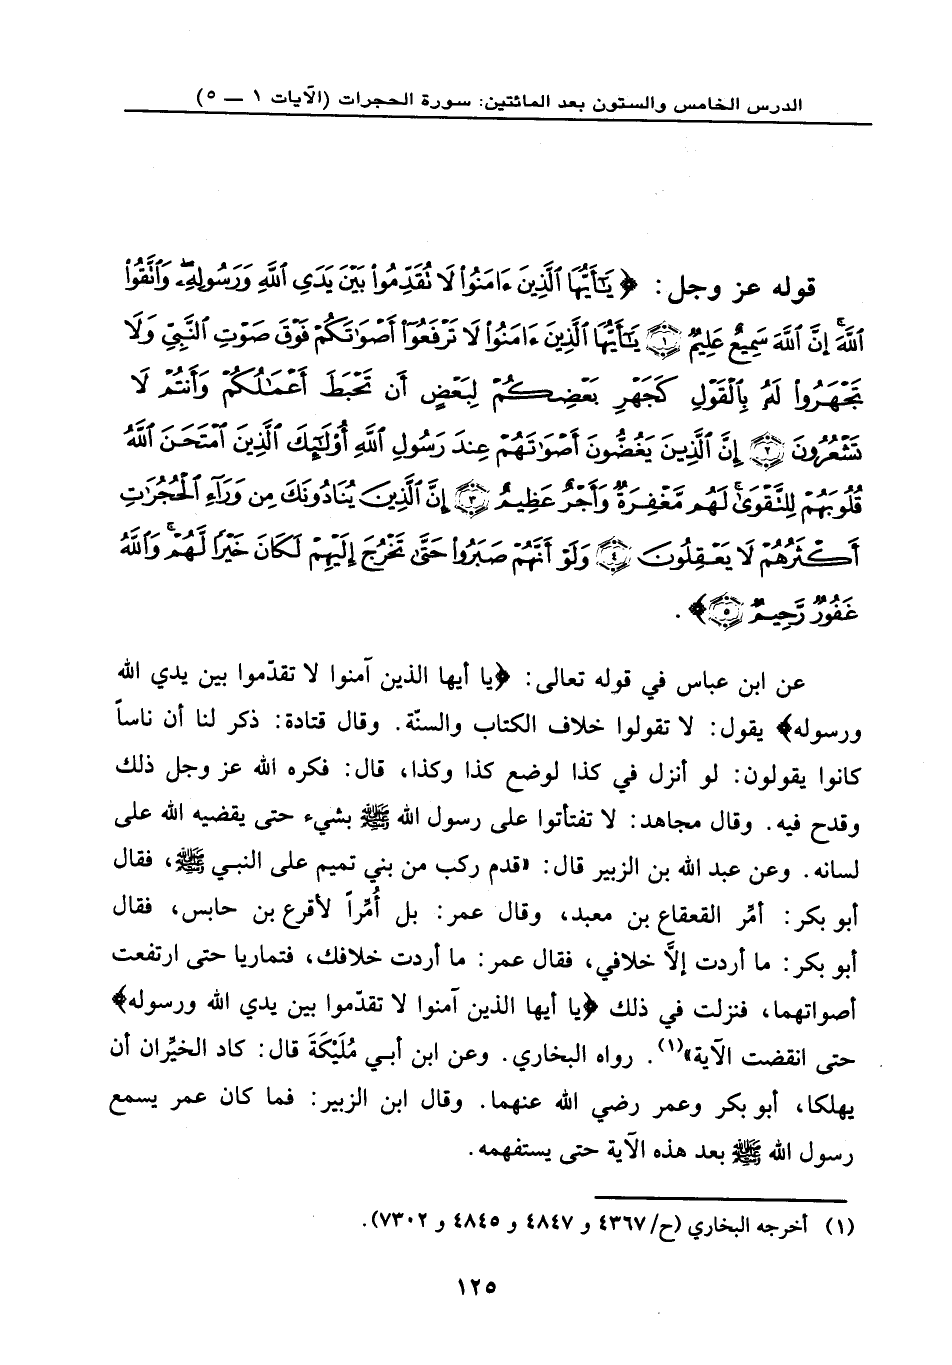 الدرس الخامس والستون بعد المائتين: سورة الحجرات (الآيات ١ — ٥)
قوله عز وجل: ﴿يَٰٓأَيُّهَا ٱلَّذِينَ ءَامَنُوا۟ لَا تُقَدِّمُوا۟ بَيْنَ يَدَىِ ٱللَّهِ وَرَسُولِهِۦ ۖ وَٱتَّقُوا۟
ٱللَّهَ ۚ إِنَّ ٱللَّهَ سَمِيعٌ عَلِيمٌ ﴿١﴾ يَٰٓأَيُّهَا ٱلَّذِينَ ءَامَنُوا۟ لَا تَرْفَعُوٓا۟ أَصْوَٰتَكُمْ فَوْقَ صَوْتِ ٱلنَّبِىِّ وَلَا
تَجْهَرُوا۟ لَهُۥ بِٱلْقَوْلِ كَجَهْرِ بَعْضِكُمْ لِبَعْضٍ أَن تَحْبَطَ أَعْمَٰلُكُمْ وَأَنتُمْ لَا
تَشْعُرُونَ ﴿٢﴾ إِنَّ ٱلَّذِينَ يَغُضُّونَ أَصْوَٰتَهُمْ عِندَ رَسُولِ ٱللَّهِ أُو۟لَٰٓئِكَ ٱلَّذِينَ ٱمْتَحَنَ ٱللَّهُ
قُلُوبَهُمْ لِلتَّقْوَىٰ ۚ لَهُم مَّغْفِرَةٌ وَأَجْرٌ عَظِيمٌ ﴿٣﴾ إِنَّ ٱلَّذِينَ يُنَادُونَكَ مِن وَرَآءِ ٱلْحُجُرَٰتِ
أَكْثَرُهُمْ لَا يَعْقِلُونَ ﴿٤﴾ وَلَوْ أَنَّهُمْ صَبَرُوا۟ حَتَّىٰ تَخْرُجَ إِلَيْهِمْ لَكَانَ خَيْرًا لَّهُمْ ۚ وَٱللَّهُ
غَفُورٌ رَّحِيمٌ ﴿٥﴾﴾.
عن ابن عباس في قوله تعالى: ﴿يا أيها الذين آمنوا لا تقدّموا بين يدي الله
ورسوله﴾ يقول: لا تقولوا خلاف الكتاب والسنّة. وقال قتادة: ذكر لنا أن ناساً
كانوا يقولون: لو أنزل في كذا لوضع كذا وكذا، قال: فكره الله عز وجل ذلك
وقدح فيه. وقال مجاهد: لا تفتأتوا على رسول الله ﷺ بشيء حتى يقضيه الله على
لسانه. وعن عبد الله بن الزبير قال: «قدم ركب من بني تميم على النبي ﷺ، فقال
أبو بكر: أمِّر القعقاع بن معبد، وقال عمر: بل أُمِّراً لأقرع بن حابس، فقال
أبو بكر: ما أردت إلَّا خلافي، فقال عمر: ما أردت خلافك، فتماريا حتى ارتفعت
أصواتهما، فنزلت في ذلك ﴿يا أيها الذين آمنوا لا تقدّموا بين يدي الله ورسوله﴾
حتى انقضت الآية»(١). رواه البخاري. وعن ابن أبي مُلَيْكَةَ قال: كاد الخيِّران أن
يهلكا، أبو بكر وعمر رضي الله عنهما. وقال ابن الزبير: فما كان عمر يسمع
رسول الله ﷺ بعد هذه الآية حتى يستفهمه.
(١) أخرجه البخاري (ح/ ٤٣٦٧ و ٤٨٤٧ و ٤٨٤٥ و ٧٣٠٢).
١٢٥